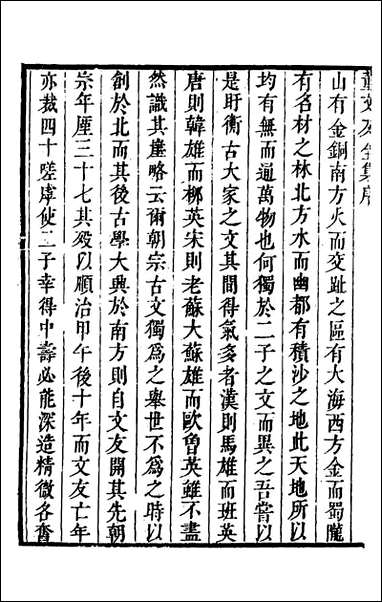 董文友全集序
山有金銅南方火而交趾之區有大海西方金而蜀隴
有名材之林北方水而幽都有積沙之地此天地所以
均有無而通萬物也何獨於二子之文而異之吾嘗以
是盱衡古大家之文其間得氣多者漢則馬雄而班英
唐則韓雄而柳英宋則老蘇大蘇雄而歐魯英雖不盡
然識其崖略云爾朝宗古文獨爲之舉世不爲之時以
創於北而其後古學大興於南方則自文友開其先朝
宗年厪三十七其殁以順治甲午後十年而文友亡年
亦裁四十嗟虖使二子幸得中壽必能深造精微各奮